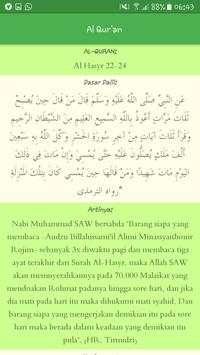 06:43
Al Qur'an
AL-QURAN:
Al Hasyr 22-24
Dasar Dalil:
عَنِ النَّبِيِّ صَلَّى اللَّهُ عَلَيْهِ وَسَلَّمَ قَالَ مَنْ قَالَ حِينَ يُصْبِحُ
ثَلَاثَ مَرَّاتٍ أَعُوذُ بِاللَّهِ السَّمِيعِ الْعَلِيمِ مِنَ الشَّيْطَانِ الرَّجِيمِ
وَقَرَأَ ثَلَاثَ آيَاتٍ مِنْ آخِرِ سُورَةِ الْحَشْرِ وَكَّلَ اللَّهُ بِهِ سَبْعِينَ
أَلْفَ مَلَكٍ يُصَلُّونَ عَلَيْهِ حَتَّى يُمْسِيَ وَإِنْ مَاتَ فِي ذَلِكَ الْيَوْمِ
مَاتَ شَهِيدًا وَمَنْ قَالَهَا حِينَ يُمْسِي كَانَ بِتِلْكَ الْمَنْزِلَةِ
"رواه الترمذى*
Artinya:
Nabi Muhammad SAW bersabda "Barang siapa yang
membaca - Audzu Billahissmi'il Alimi Minasyaithonir
Rojim - selanyak 3x diwaktu pagi dan membaca tiga
ayat terakhir dari Surah Al-Hasyr, maka Allah SAW
akan menyerahkannya pada 70.000 Malaikat yang
mendoakan Rohmat padanya hingga sore hari, dan jika
dia mati pada hari itu maka dihukumi mati syahid, Dan
barang siapa yang mengerjakan demikian itu pada sore
hari maka berada dalam keadaan yang demikian itu
pula", (HR. Tirmidzi)